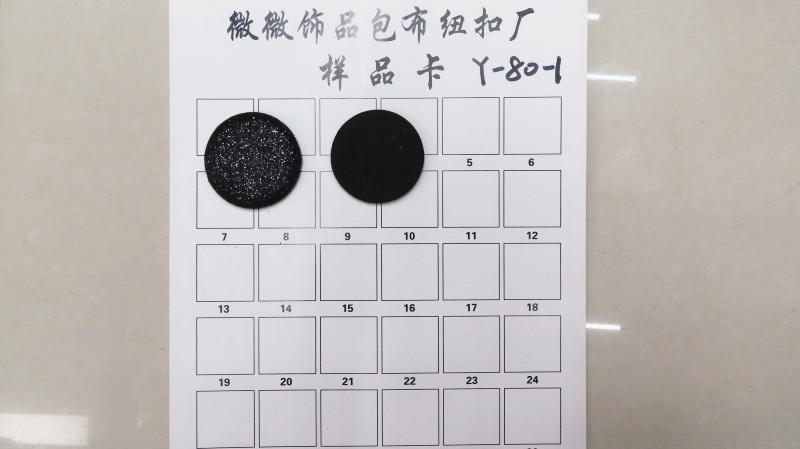 微微饰品包布纽扣厂
样品卡 Y-80-1
5 6
7 8 9 10 11 12
13 14 15 16 17 18
19 20 21 22 23 24